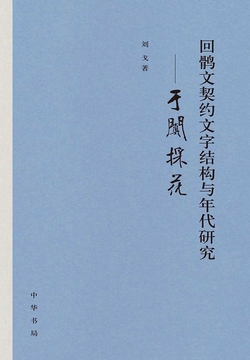 回鹘文契约文字结构与年代研究
——于闐採花
刘戈 著
中华书局